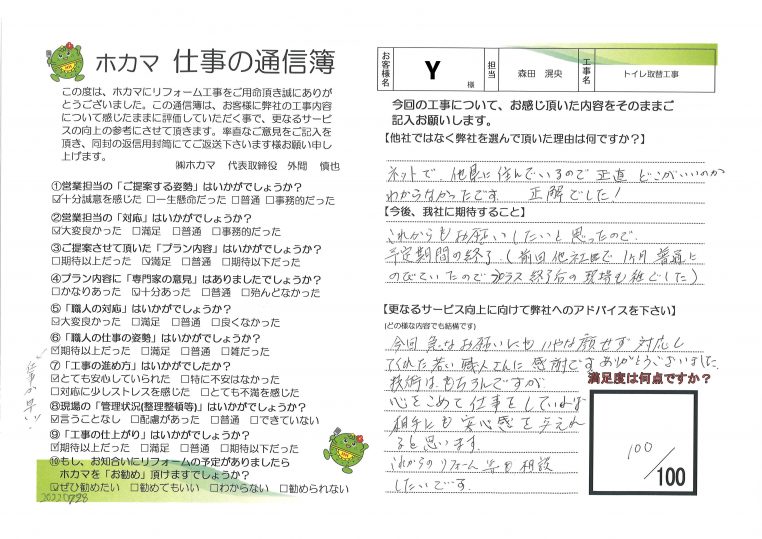 ホカマ 仕事の通信簿
この度は、ホカマにリフォーム工事をご用命頂き誠にありが
とうございました。この通信簿は、お客様に弊社の工事内容
について感じたままに評価していただく事で、更なるサービ
スの向上の参考にさせて頂きます。率直なご意見をご記入を
頂き、同封の返信用封筒にてご返送下さいます様お願い申し
上げます。
㈱ホカマ 代表取締役 外間 慎也
①営業担当の「ご提案する姿勢」はいかがでしょうか?
☑十分誠意を感じた □一生懸命だった □普通 □事務的だった
②営業担当の「対応」はいかがでしょうか?
☑大変良かった □満足 □普通 □事務的だった
③ご提案させて頂いた「プラン内容」はいかがでしょうか?
□期待以上だった ☑満足 □普通 □期待以下だった
④プラン内容に「専門家の意見」はありましたでしょうか?
□かなりあった ☑十分あった □普通 □殆んどなかった
⑤「職人の対応」はいかがでしょうか?
☑大変良かった □満足 □普通 □良くなかった
⑥「職人の仕事の姿勢」はいかがでしょうか?
☑期待以上だった □満足 □普通 □雑だった
⑦「工事の進め方」はいかがでしたか?
☑とても安心していられた □特に不安はなかった
□対応に少しストレスを感じた □とても不満を感じた
⑧現場の「管理状況(整理整頓等)」はいかがでしょうか?
☑言うことなし □配慮があった □普通 □できていない
⑨「工事の仕上がり」はいかがでしょうか?
☑期待以上だった □満足 □普通 □期待以下だった
⑩もし、お知合いにリフォームの予定がありましたら
ホカマを「お勧め」頂けますでしょうか?
☑ぜひ勧めたい □勧めてもいい □わからない □勧められない
20220728
仕事が早い!
お客様名 Y 様 担当 森田 滉央 工事名 トイレ取替工事
今回の工事について、お感じ頂いた内容をそのままご
記入お願いします。
【他社ではなく弊社を選んで頂いた理由は何ですか?】
ネットで 他県に住んでいるので 正直 どこがいいのか
わからなかったです 正解でした!
【今後、我社に期待すること】
これからもお願いしたいと思ったので、
予定期間の終了(前回他社で1ヶ月普通に
のびていたので
【更なるサービス向上に向けて弊社へのアドバイスを下さい】
(どの様な内容でも結構です)
今回 急なお願いにもいやな顔せず 対応し
てくれた若い職人さんに感謝です ありがとうございました
技術はもちろんですが
心をこめて仕事をしていれば
相手にも安心感を与えれ
ると思います。
これからのリフォーム等も相談
したいです。
満足度は何点ですか?
100/100